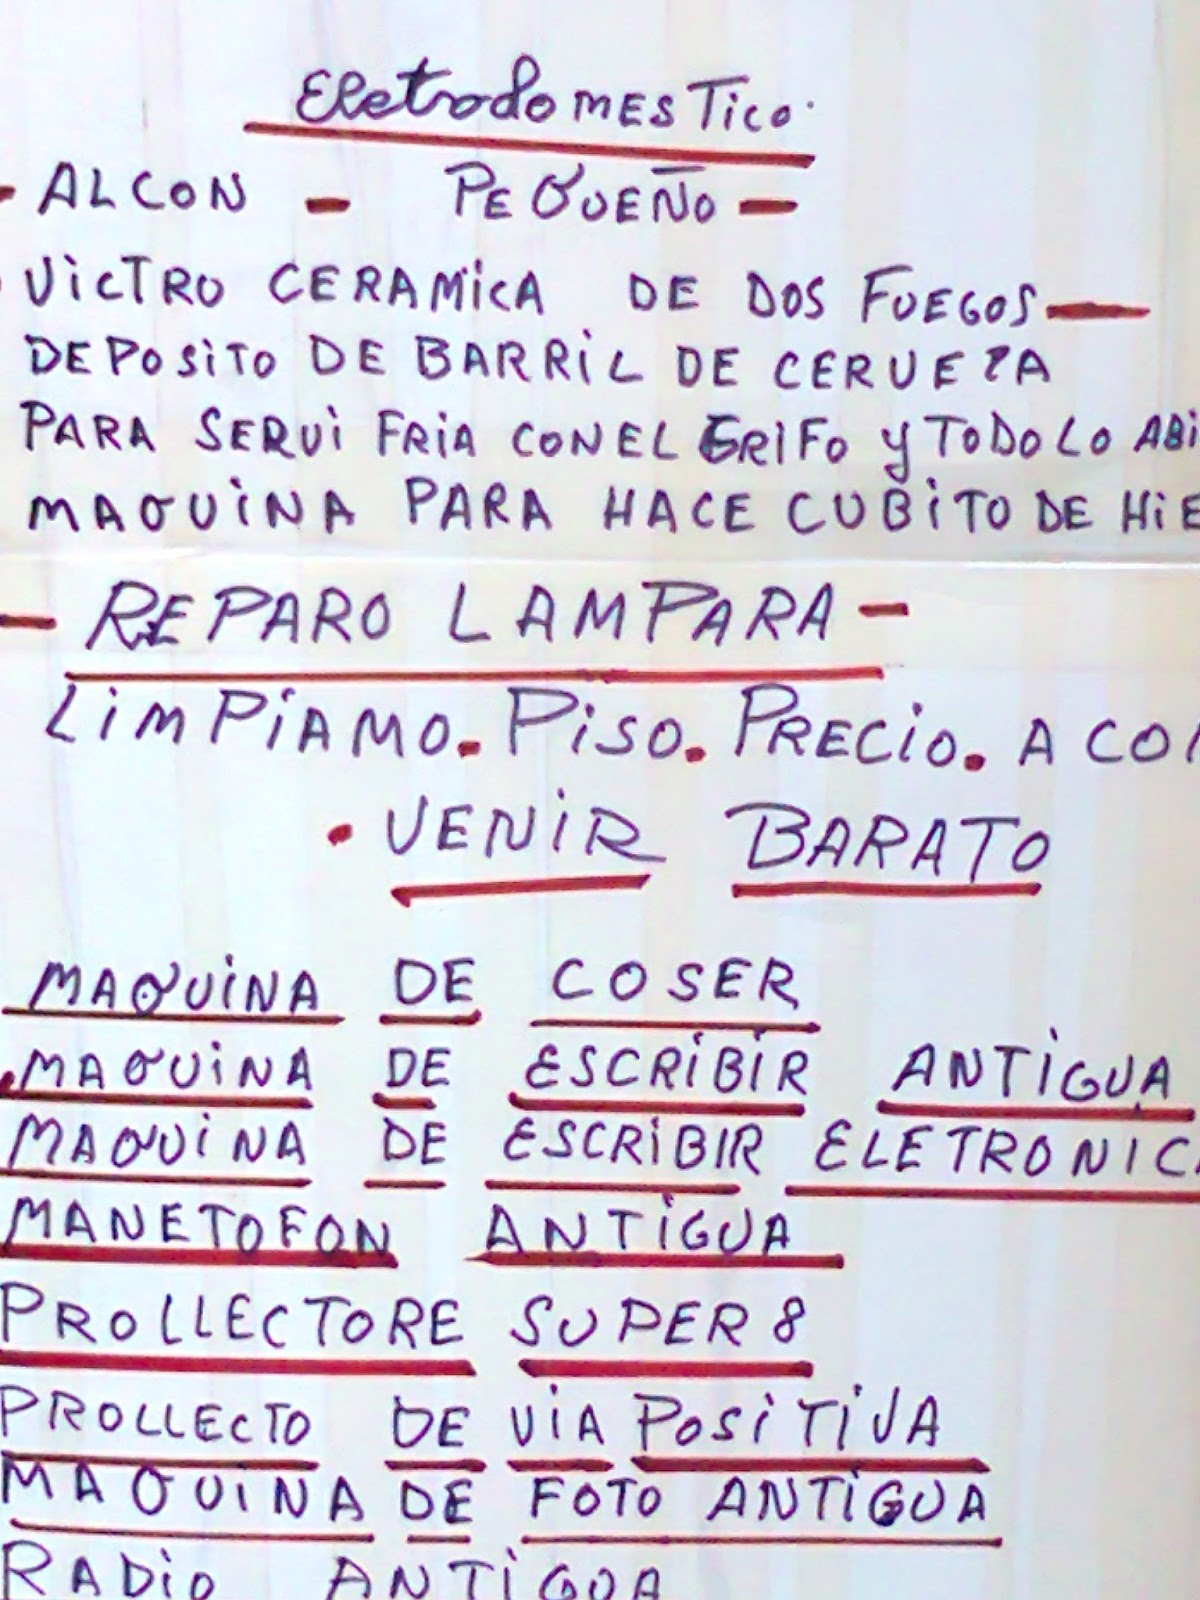 EletrodomesTico.
- ALCON - PEQUEÑO -
VICTRO CERAMICA DE DOS FUEGOS —
DEPOSITO DE BARRIL DE CERVEZA
PARA SERVI FRIA CONEL GRIFO Y TODO LO ABI
MAQUINA PARA HACE CUBITO DE HIE
- REPARO LAMPARA -
LIMPIAMO. PISO. PRECIO. A CO
. VENIR BARATO
MAQUINA DE COSER
.MAQUINA DE ESCRIBIR ANTIGUA
MAQUINA DE ESCRIBIR ELETRONIC
MANETOFON ANTIGUA
PROLLECTORE SUPER 8
PROLLECTO DE VIA POSITIVA
MAQUINA DE FOTO ANTIGUA
RADIO ANTIGUA